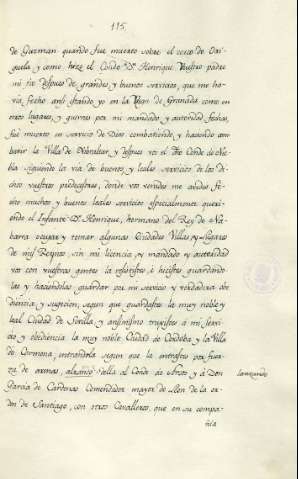 115
de Guzman quando fue muerto sobre el cerco de Ori-
guela y como hizo el Conde Dⁿ. Henrique vuestro padre
mi tio despues de grandes, y buenos servicios, que me ha-
via fecho ansi estando yo en la Vega de Granada como en
otros lugares, y guerras por mi mandado, y autoridad fechas,
fue muerto en servicio de Dios combatiendo, y haciendo com-
batir la Villa de Gibraltar, y despues vos el dho Conde de Nie-
bla siguiendo la via de buenos, y leales servicios de los di-
chos vuestros predecesores, donde vos venides me avedes fe-
cho muchos, y buenos leales servicios especialmente queri-
endo el Infante Dⁿ. Henrique, hermano del Rey de Na-
barra ocupar, y tomar algunas Ciudades Villas, y Lugares
de mis Reynos sin mi licencia, y mandado, y autoridad
vos con vuestras gentes la resististes, è hicistes guardando-
las, y haciendolas guardar por mi servicio, y verdadera obe-
diencia, y sugecion, segun que guardastes la muy noble, y
leal Ciudad de Sevilla, y ansimismo truxistes á mi servi-
cio, y obediencia la muy noble Ciudad de Cordoba, y la Villa
de Carmona, entrandola segun que la entrastes por fuer-
za de armas, alzando della al Conde de Arcos, y á Don
lanzando
Garcia de Cardenas Comendador mayor de Leon de la or-
den de Santiago, con otros Cavalleros, que en su compa-
ñia